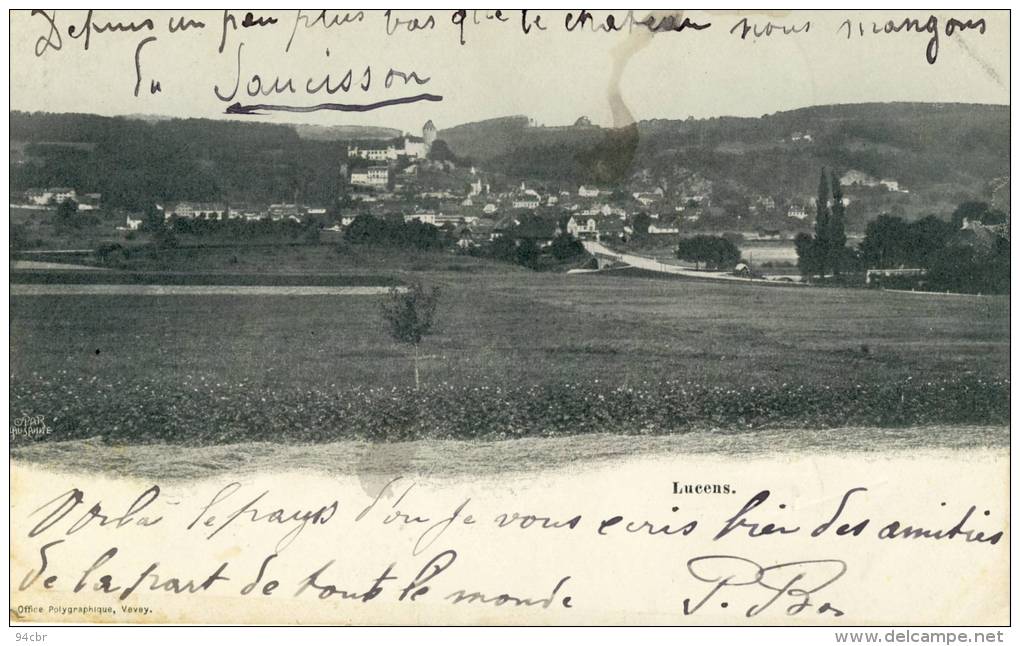 Depuis un peu plus bas que le chateau nous mangons
du Saucisson
OPAR
LAUSANNE
Lucens.
Voilà le pays d'ou je vous ecris bien des amities
de la part de tout le monde P. Bos
Office Polygraphique, Vevey.
94cbr
www.delcampe.net